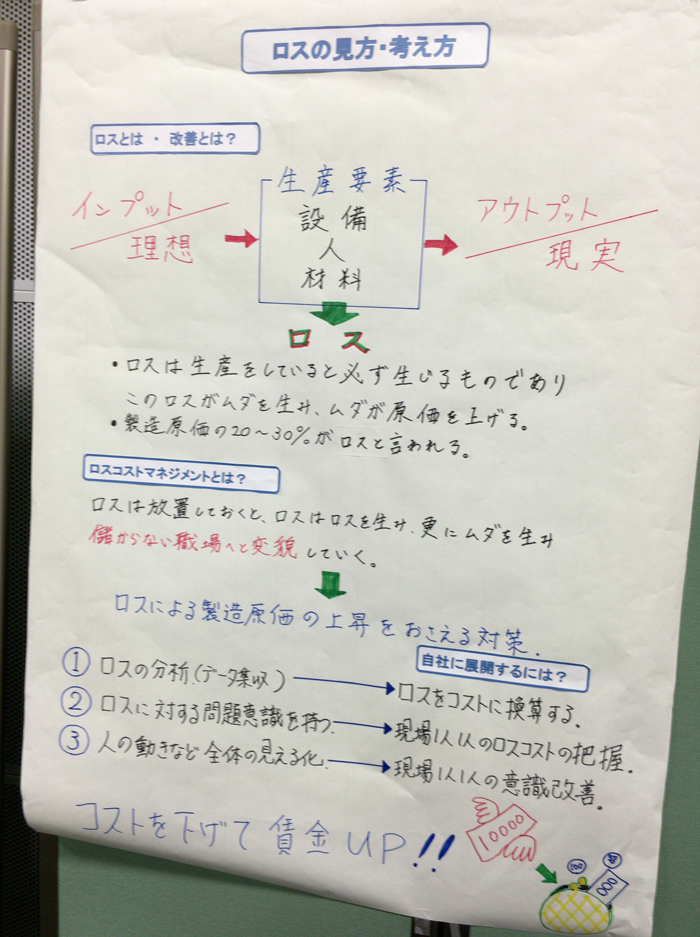 ロスの見方・考え方
ロスとは ・ 改善とは?
インプット
理想
生産要素
設備
人
材料
アウトプット
現実
ロス
・ロスは生産をしていると必ず生じるものであり
このロスがムダを生み、ムダが原価を上げる。
・製造原価の20～30%がロスと言われる。
ロスコストマネジメントとは?
ロスは放置しておくと、ロスはロスを生み、更にムダを生み
儲からない職場へと変貌していく。
ロスによる製造原価の上昇をおさえる対策.
自社に展開するには?
① ロスの分析.(データ集収)
ロスをコストに換算する.
② ロスに対する問題意識を持つ.
現場1人1人のロスコストの把握.
③ 人の動きなど全体の見える化.
現場1人1人の意識改善.
コストを下げて賃金UP!!
10000
100
000